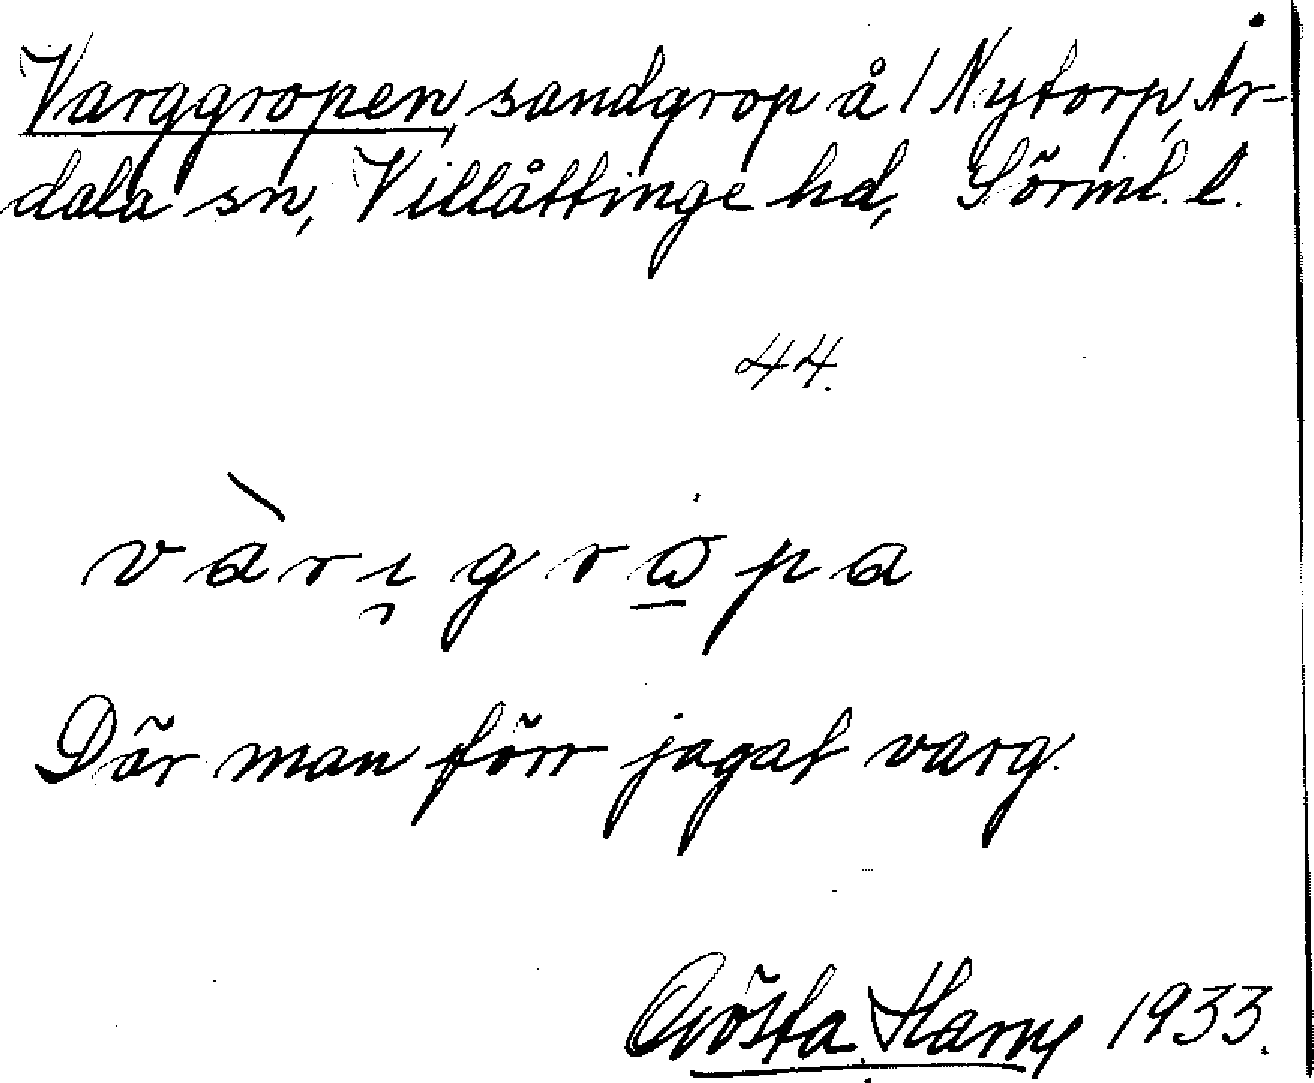 Varggropen, sandgrop å 1 Nytorp, År-
dala sn, Villåttinge hd, Sörml. l.
44.
vàrıgròpa
Där man förr jagat varg.
Gösta Harry 1933.